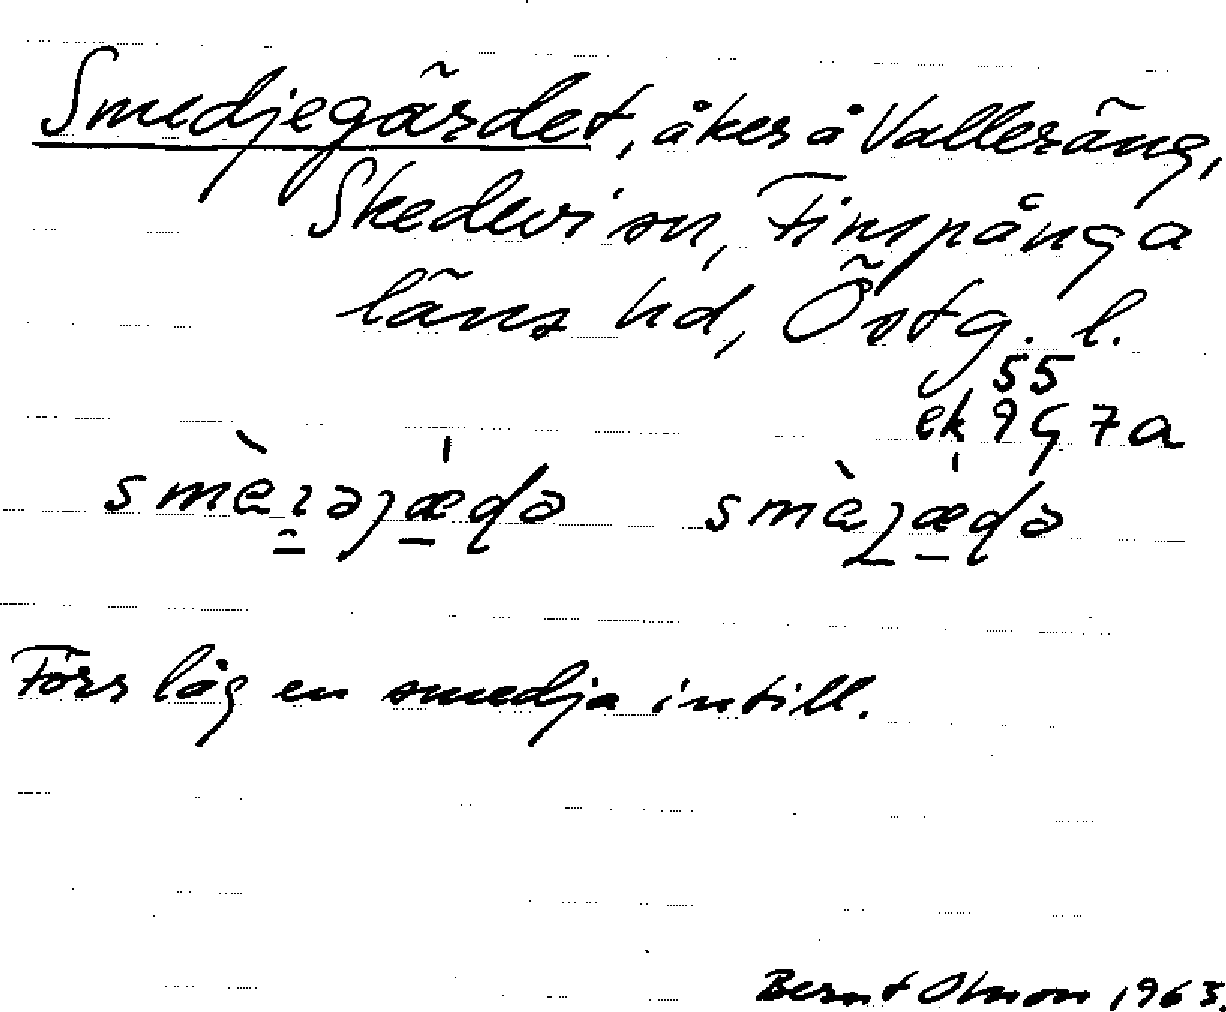 Smedjegärdet, åker å Valleräng,
Skedevi sn, Finspånga
läns hd, Östg. l.
55
ek 9G7a
smèɿəȷæɖə smèȷæɖə
Förr låg en smedja intill.
Bernt Olsson, 1963.